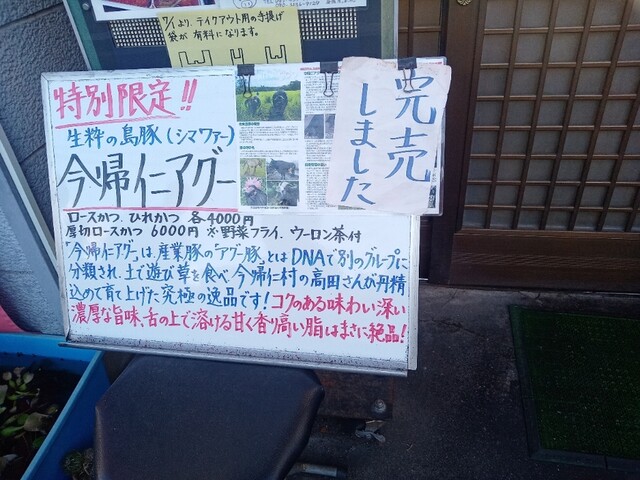 7/1より、テイクアウト用の手提げ
袋が有料になります。
特別限定!!
生粋の島豚(シマウァー)
今帰仁アグー
完売
しました
ロースかつ、ひれかつ 各4000円
厚切ロースかつ 6000円 ※野菜フライ、ウーロン茶付
「今帰仁アグー」は、産業豚の「アグー豚」とはDNAで別のグループに
分類され、土で遊び草を食べ、今帰仁村の高田さんが丹精
込めて育て上げた究極の逸品です!コクのある味わい深い
濃厚な旨味、舌の上で溶ける甘く香り高い脂はまさに絶品!